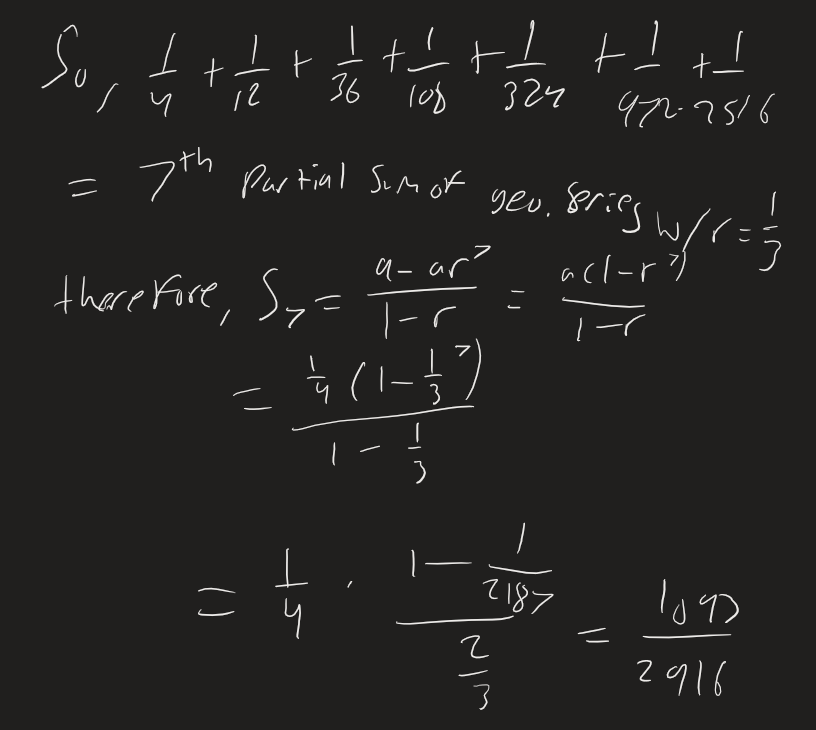 So, 1/4 + 1/12 + 1/36 + 1/108 + 1/324 + 1/972 + 1/2516
= 7^th partial sum of geo. series w/ r = 1/3
therefore, S_7 = (a - ar^7)/(1 - r) = a(1 - r^7)/(1 - r)
= 1/4 (1 - 1/3^7)/(1 - 1/3)
= 1/4 · (1 - 1/2187)/(2/3) = 1093/2916